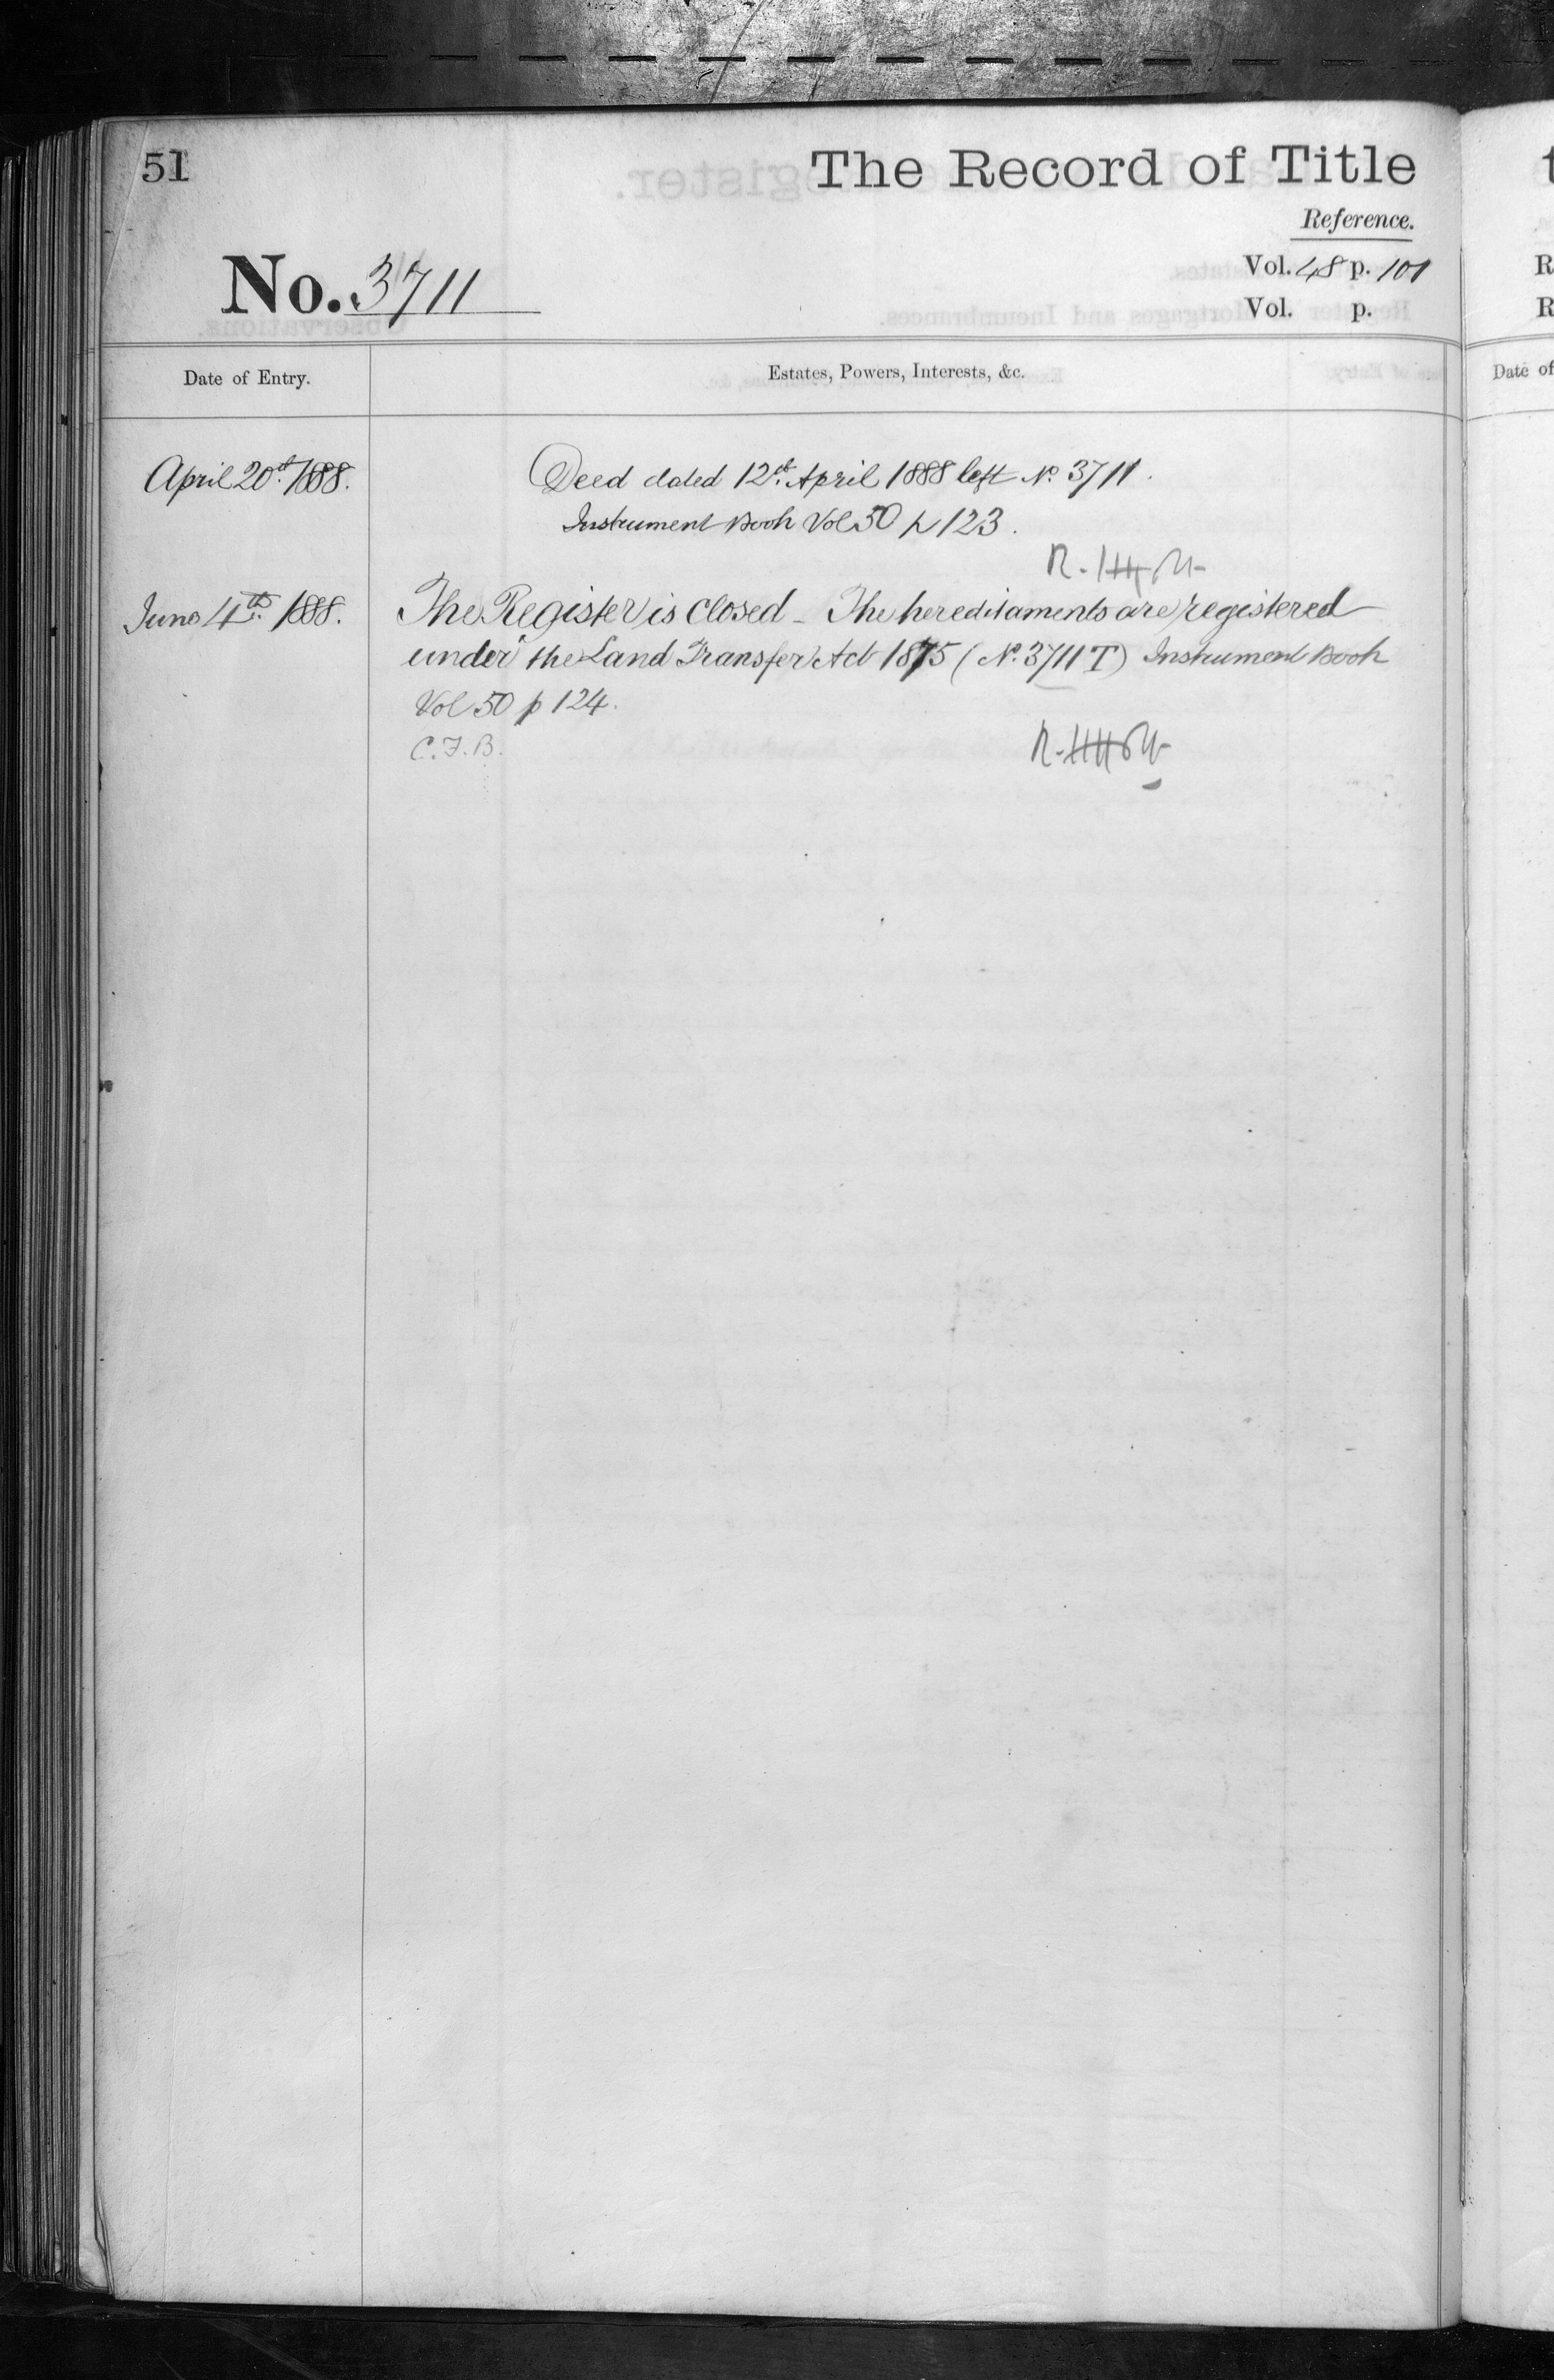 51
The Record of Title
Reference.
No. 3711
Vol. 48 p. 101
Vol. p.
Date of Entry.
Estates, Powers, Interests, &c.
April 20th 1888.
Deed dated 12th April 1888 left No. 3711.
Instrument Book Vol 50 p 123.
June 4th 1888.
The Register is closed - The hereditaments are registered
under the Land Transfer Act 1875 (No. 3711 T) Instrument Book
Vol 50 p 124.
C.F.B.
R
R
Date of